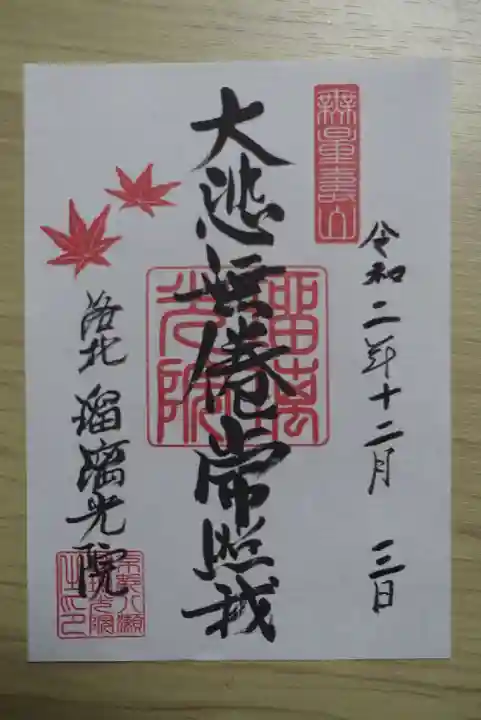 無量壽山
令和二年十二月 三日
大悲無倦常照我
洛北 瑠璃光院